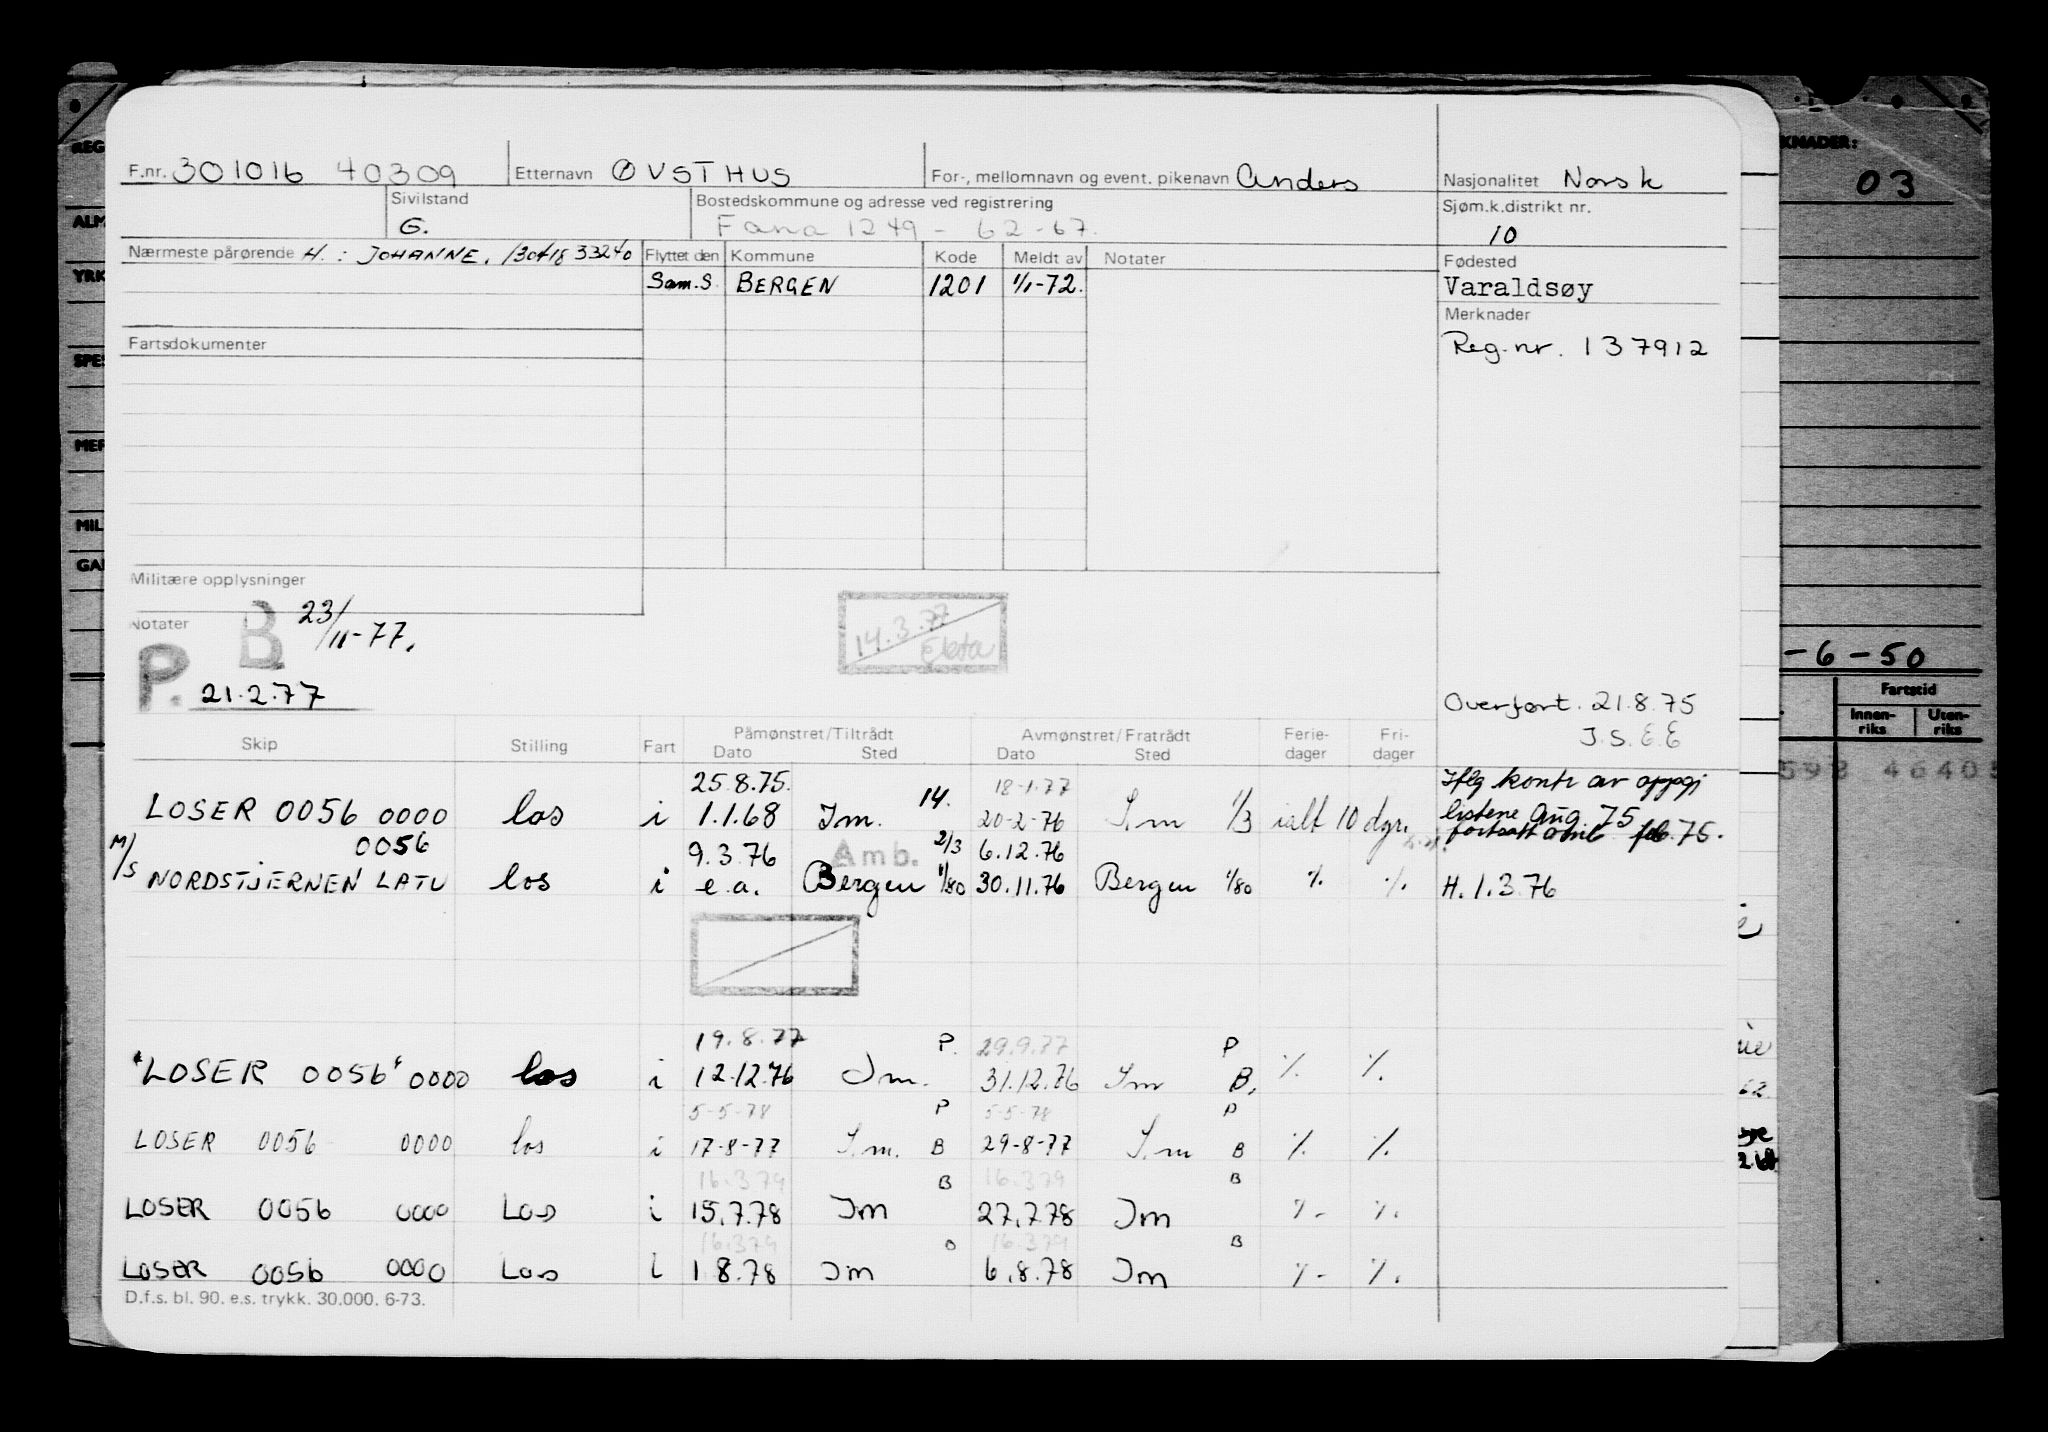 F.nr. 301016 40309 Etternavn ØVSTHUS For-, mellomnavn og event. pikenavn Anders Nasjonalitet Norsk
Sivilstand G. Bostedskommune og adresse ved registrering Fana 1249 - 62-67. Sjøm.k.distrikt nr. 10
Nærmeste pårørende H. : JOHANNE, 130418 33240 Flyttet den Kommune Kode Meldt av Notater Fødested
Sam.S. BERGEN 1201 1/1-72. Varaldsøy
Merknader
Fartsdokumenter Reg.nr. 137912
Militære opplysninger
Notater B 23/11-77.
P. 21.2.77
14.3.77
Ekta
Overført. 21.8.75
J.S.E.E
Skip Stilling Fart Påmønstret/Tiltrådt Dato Sted Avmønstret/Fratrådt Dato Sted Ferie-dager Fri-dager
25.8.75. 14. 18-1.77 Iflg kontr av oppgj
LOSER 0056 0000 los i 1.1.68 Im. 20-2-76 I.m 1/3 ialt 10 dgr. listene Aug. 75
0056 9.3.76 Amb. 2/3 6.12.76 feb. 76.
M/S NORDSTJERNEN LATU los i e.a. Bergen 1/80 30.11.76 Bergen 1/80 % % H. 1.3.76
19.8.77 P. 29.9.77 P
"LOSER 0056" 0000 los i 12.12.76 Im. 31.12.76 Im B. % %.
5-5-78 P 5-5-78 P
LOSER 0056 0000 los i 17-8-77 I.m. B 29-8-77 I.m B % %.
16.3.79 B 16.3.79 B
LOSER 0056 0000 Los i 15.7.78 Im 27.7.78 Im %- %.
16.3.79 B 16.3.79 B
LOSER 0056 0000 Los i 1.8.78 Im 6.8.78 Im %- %.
D.f.s. bl. 90. e.s. trykk. 30.000. 6-73.
REG
ALM
YRK
SPES
MER
MIL
GA
KNADER:
03
-6-50
Fartstid
Innen-riks Uten-riks